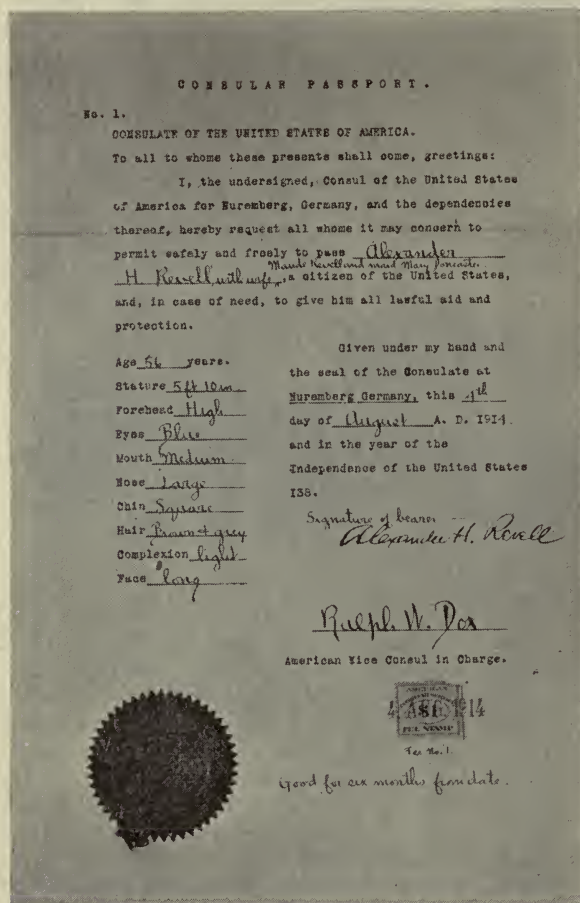 CONSULAR PASSPORT.
No. 1.
CONSULATE OF THE UNITED STATES OF AMERICA.
To all to whome these presents shall come, greetings:
I, the undersigned, Consul of the United States
of America for Nuremberg, Germany, and the dependencies
thereof, hereby request all whome it may concern to
permit safely and freely to pass Alexander
Maude Revell and maid Mary
H. Revell, with wife, a citizen of the United States,
and, in case of need, to give him all lawful aid and
protection.
Age 56 years.
Stature 5 ft 10 in
Forehead High
Eyes Blue
Mouth Medium
Nose Large
Chin Square
Hair Brown & grey
Complexion light
Face long
Given under my hand and
the seal of the Consulate at
Nuremberg Germany, this 4th
day of August A. D. 1914
and in the year of the
Independence of the United States
138.
Signature of bearer
Alexander H. Revell
Ralph W. Dox
American Vice Consul in Charge.
AMERICAN
4 AUG. 1914
$1
FEE STAMP
Fee No. 1.
Good for six months from date.